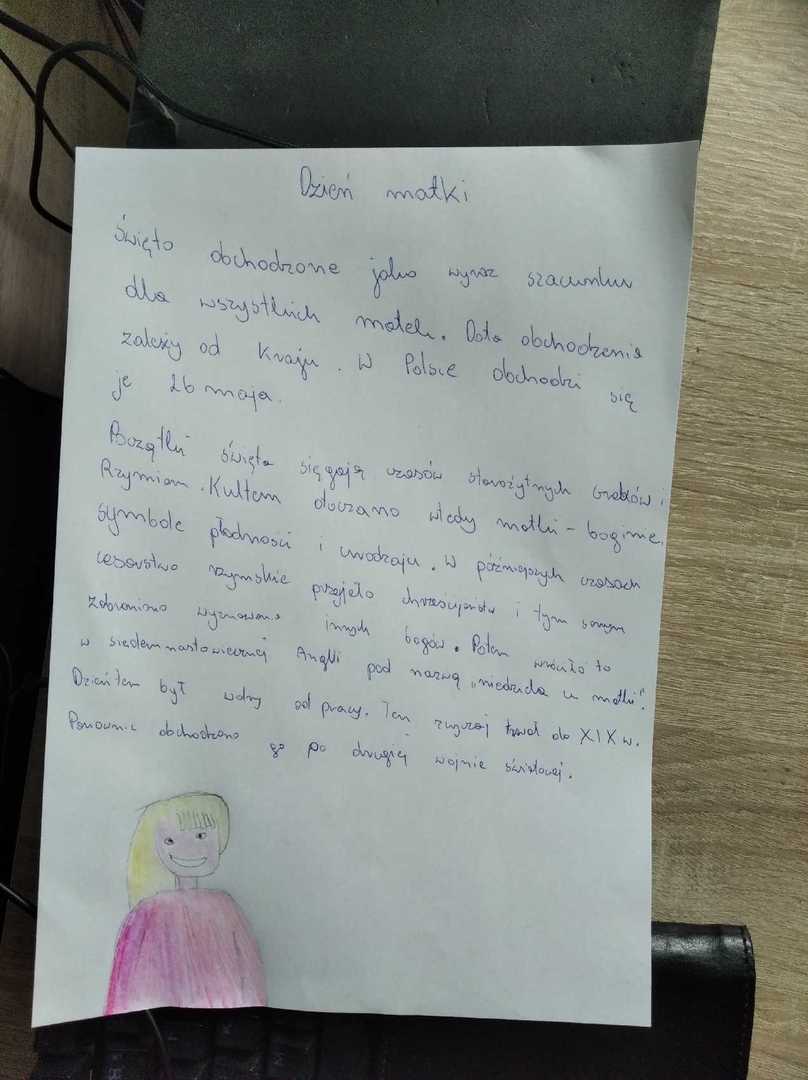 Dzień matki
Święto obchodzone jako wyraz szacunku
dla wszystkich matek. Data obchodzenia
zależy od Kraju. W Polsce obchodzi się
je 26 maja.
Początki święta sięgają czasów starożytnych Greków i
Rzymian. Kultem otoczano wtedy matki - boginie,
symbole płodności i urodzaju. W późniejszych czasach
cesarstwo rzymskie przyjęło chrześcijaństwo i tym samym
zabroniono wyznawania innych bogów. Potem wróciło to
w siedemnastowiecznej Anglii pod nazwą „niedziela u matki".
Dzień ten był wolny od pracy. Ten zwyczaj trwał do XIX w.
Ponownie obchodzono go po drugiej wojnie światowej.